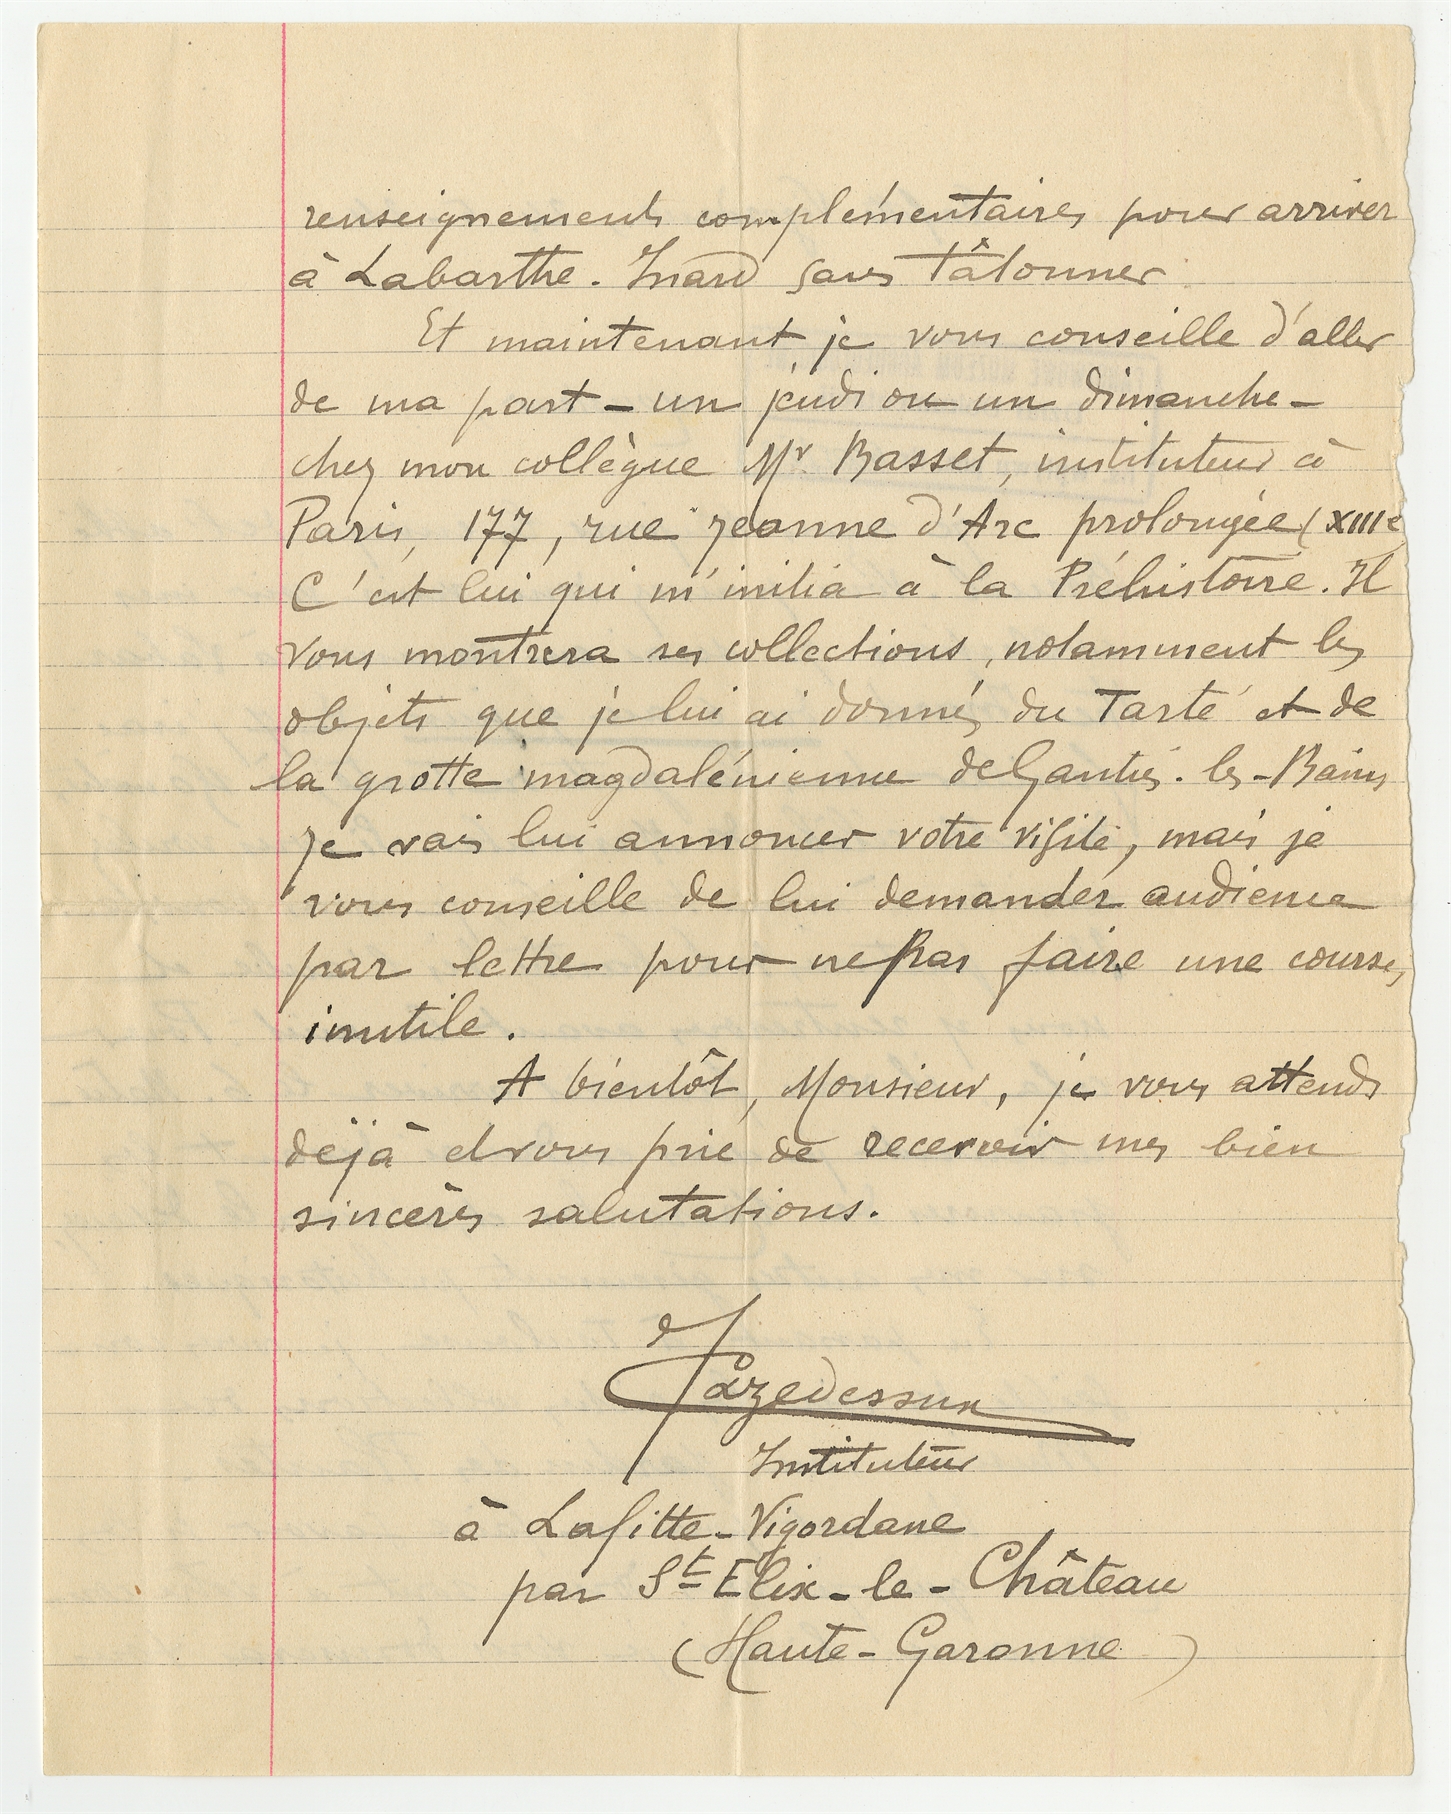 renseignements complémentaires pour arriver
à Labarthe. Inard sans tâtonner.
Et maintenant je vous conseille d'aller
de ma part - un jeudi ou un dimanche -
chez mon collègue Mr Basset, instituteur à
Paris, 177, rue Jeanne d'Arc prolongée (XIIIe
C'est lui qui m'initia à la Préhistoire. Il
vous montrera ses collections, notamment les
objets que je lui ai donnés du Tarté et de
la grotte magdalénienne de Ganties-les-Bains
Je vais lui annoncer votre visite, mais je
vous conseille de lui demander audience
par lettre pour ne pas faire une course,
inutile.
A bientôt, Monsieur, je vous attends
déjà et vous prie de recevoir mes bien
sincères salutations.
J Cazedessus
Instituteur
à Lafitte-Vigordane
par St Elix-le-Château
(Haute-Garonne)